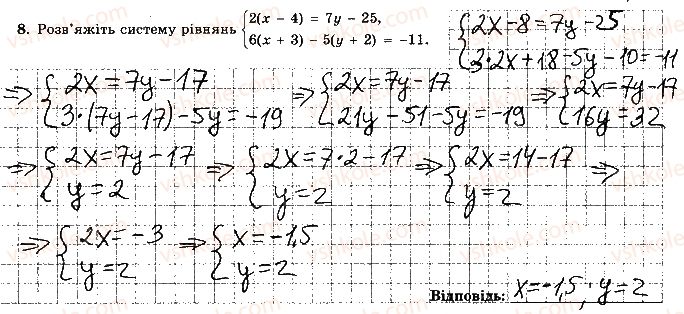 8. Розв'яжіть систему рівнянь { 2(x − 4) = 7y − 25, 6(x + 3) − 5(y + 2) = −11.
{ 2x−8=7y−25 3·2x+18−5y−10=−11
=> { 2x=7y−17 3·(7y−17)−5y=−19 => { 2x=7y−17 21y−51−5y=−19 => { 2x=7y−17 16y=32
=> { 2x=7y−17 y=2 => { 2x=7·2−17 y=2 => { 2x=14−17 y=2 =>
=> { 2x=−3 y=2 => { x=−1,5 y=2
Відповідь: x=−1,5; y=2